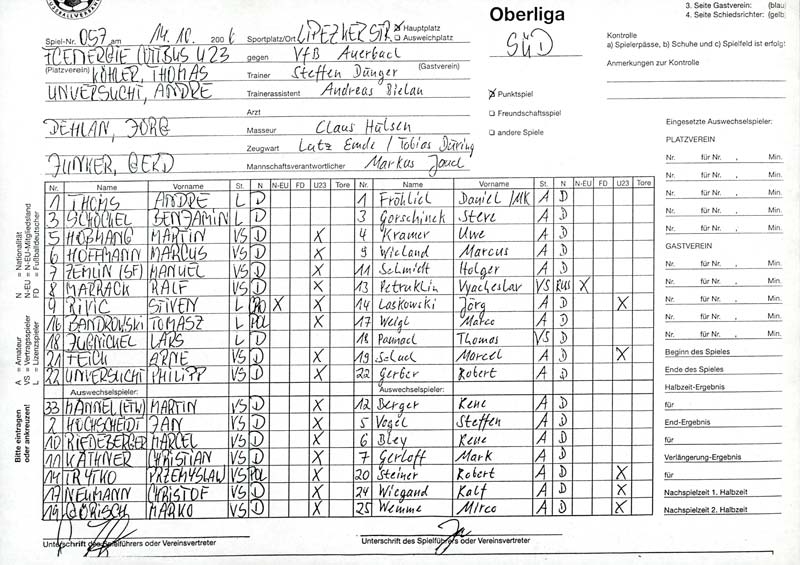 FUSSBALLVERBAND
Oberliga
SÜD
3. Seite Gastverein: (blau)
4. Seite Schiedsrichter: (gelb)
Kontrolle
a) Spielerpässe, b) Schuhe und c) Spielfeld ist erfolgt
Anmerkungen zur Kontrolle
Spiel-Nr. 057 am 14.10. 2006 Sportplatz/Ort LIPEZKER STR. X Hauptplatz
Ausweichplatz
FC ENERGIE COTTBUS U23 gegen VfB Auerbach
(Platzverein) (Gastverein)
KÖHLER, THOMAS Trainer Steffen Dünger
UNVERSUCHT, ANDRE Trainerassistent Andreas Bielan
Arzt
DEHLAN, JÖRG Masseur Claus Hülsen
Zeugwart Lutz Emde / Tobias Düring
JUNKER, GERD Mannschaftsverantwortlicher Markus
X Punktspiel
Freundschaftsspiel
andere Spiele
Nr. Name Vorname St. N N-EU FD U23 Tore Nr. Name Vorname St. N N-EU FD U23 Tore
1 THOMS ANDRÉ L D 1 Fröhlich Daniel /MK A D
3 SCHÖCKEL BENJAMIN L D 3 Gorschinek Steve A D
5 HOßMANG MARTIN VS D X 4 Kramer Uwe A D
6 HOFFMANN MARCUS VS D X 9 Wieland Marcus A D
7 ZEMLIN (SF) MANUEL VS D X 11 Schmidt Holger A D
8 MARRACK RALF VS D X 13 Petrukhin Vyacheslav VS RUS X
9 RIVIC STIVEN L X X 14 Laskowski Jörg A D X
16 BANDROWSKI TOMASZ L POL X 17 Weigl Marco A D
18 JUNGNICKEL LARS L D 18 Pannach Thomas VS D
21 TEICH ARNE VS D X 19 Schuch Marcel A D X
22 UNVERSUCHT PHILIPP VS D X 22 Gerber Robert A D
Auswechselspieler: Auswechselspieler:
33 MANNEL (ETW) MARTIN VS D X 12 Berger Rene A D
2 HOCHSCHEIDT JAN VS D X 5 Vogel Steffen A D
10 RIEDEBERGER MARCEL VS D X 6 Bley Rene A D
11 KATHNER CHRISTIAN VS D X 7 Gerloff Mark A D
14 TRYTKO PRZEMYSLAW VS POL X 20 Steiner Robert A D X
17 NEUMANN CHRISTOF VS D X 24 Wiegand Ralf A D X
19 DÖRISCH MARKO VS D X 25 Wemme Mirco A D X
Unterschrift des Spielführers oder Vereinsvertreter Unterschrift des Spielführers oder Vereinsvertreter
A = Amateur N = Nationalität
VS = Vertragsspieler N-EU = N-EU-Mitgliedsland
L = Lizenzspieler FD = Fußballdeutscher
Bitte eintragen
oder ankreuzen!
Eingesetzte Auswechselspieler:
PLATZVEREIN
Nr. für Nr. , Min.
Nr. für Nr. , Min.
Nr. für Nr. , Min.
Nr. für Nr. , Min.
GASTVEREIN
Nr. für Nr. , Min.
Nr. für Nr. , Min.
Nr. für Nr. , Min.
Nr. für Nr. , Min.
Beginn des Spieles
Ende des Spieles
Halbzeit-Ergebnis
für
End-Ergebnis
für
Verlängerung-Ergebnis
für
Nachspielzeit 1. Halbzeit
Nachspielzeit 2. Halbzeit